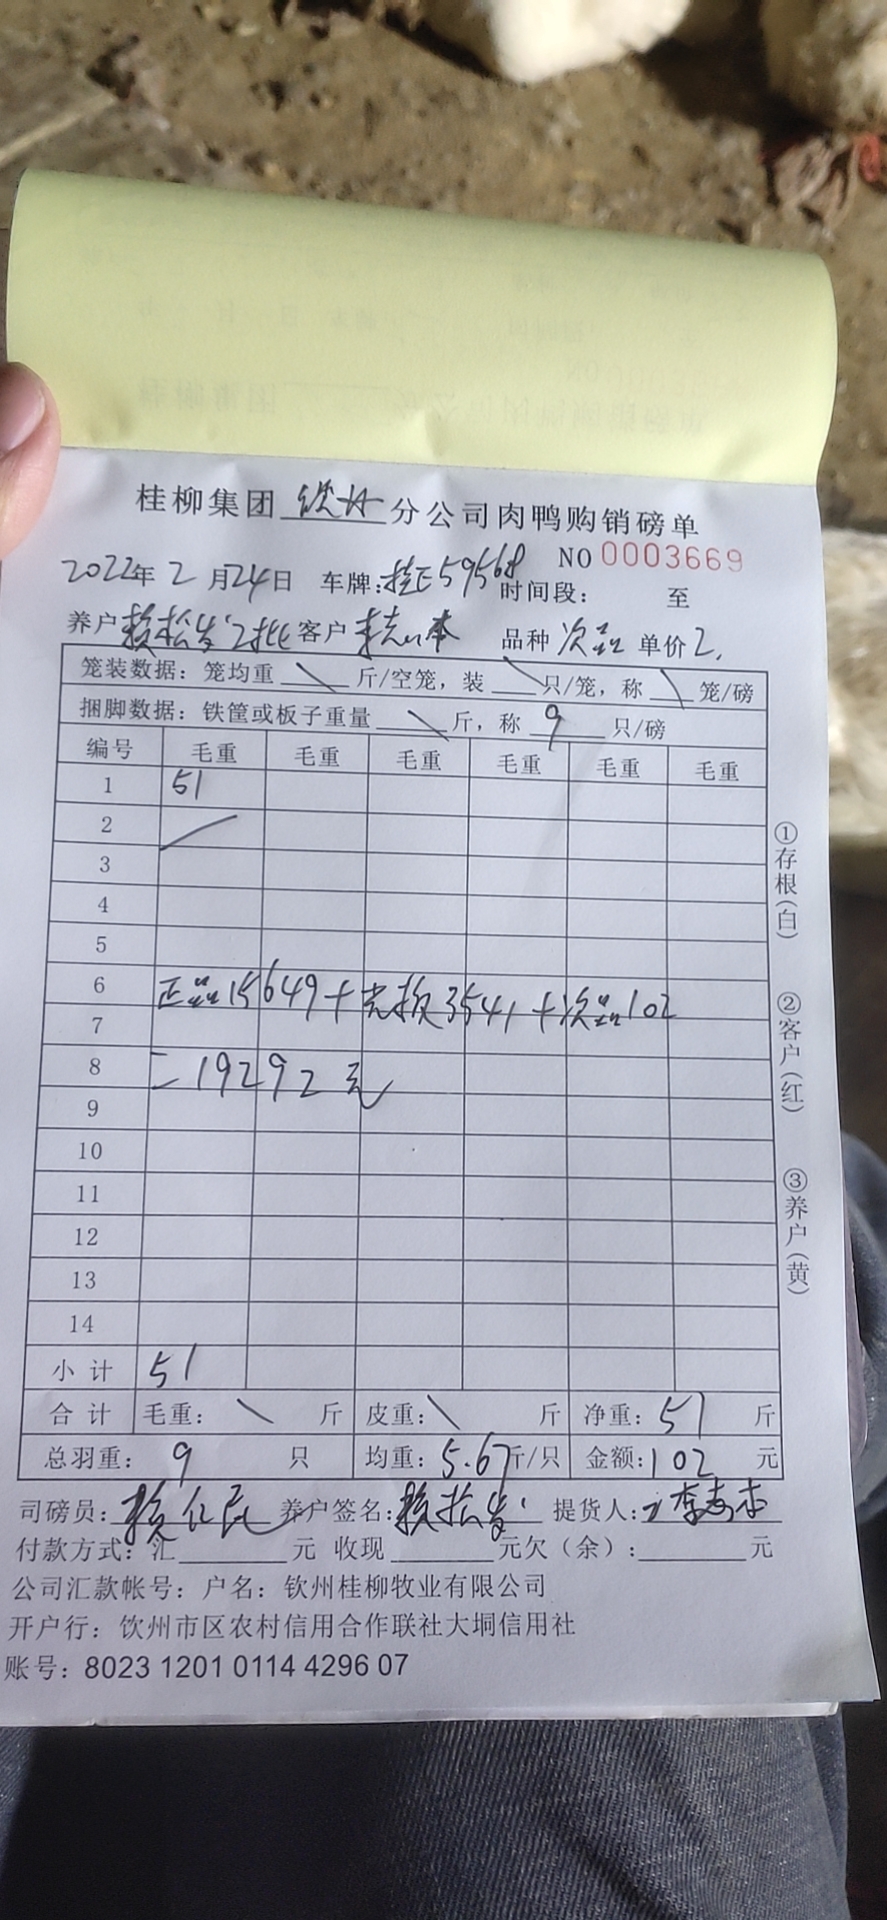 桂柳集团 钦州 分公司肉鸭购销磅单
NO 0003669
2022年 2 月24日 车牌:桂E59568 时间段: 至
养户 赖松发 2批 客户 品种 次品 单价 2.
笼装数据: 笼均重 \ 斤/空笼, 装 \ 只/笼, 称 \ 笼/磅
捆脚数据: 铁筐或板子重量 \ 斤, 称 9 只/磅
编号 毛重 毛重 毛重 毛重 毛重 毛重
1 51
2
3
4
5
6
正品15649+ 3541+次品102
7
8
=19292元
9
10
11
12
13
14
小 计 51
合 计 毛重: \ 斤 皮重: \ 斤 净重: 51 斤
总羽重: 9 只 均重: 5.67斤/只 金额: 102 元
司磅员: 赖仁民 养户签名: 赖松发 提货人:
付款方式: 汇 元 收现 元欠(余): 元
公司汇款帐号: 户名: 钦州桂柳牧业有限公司
开户行: 饮州市区农村信用合作联社大垌信用社
账号: 8023 1201 0114 4296 07
①存根(白)
②客户(红)
③养户(黄)